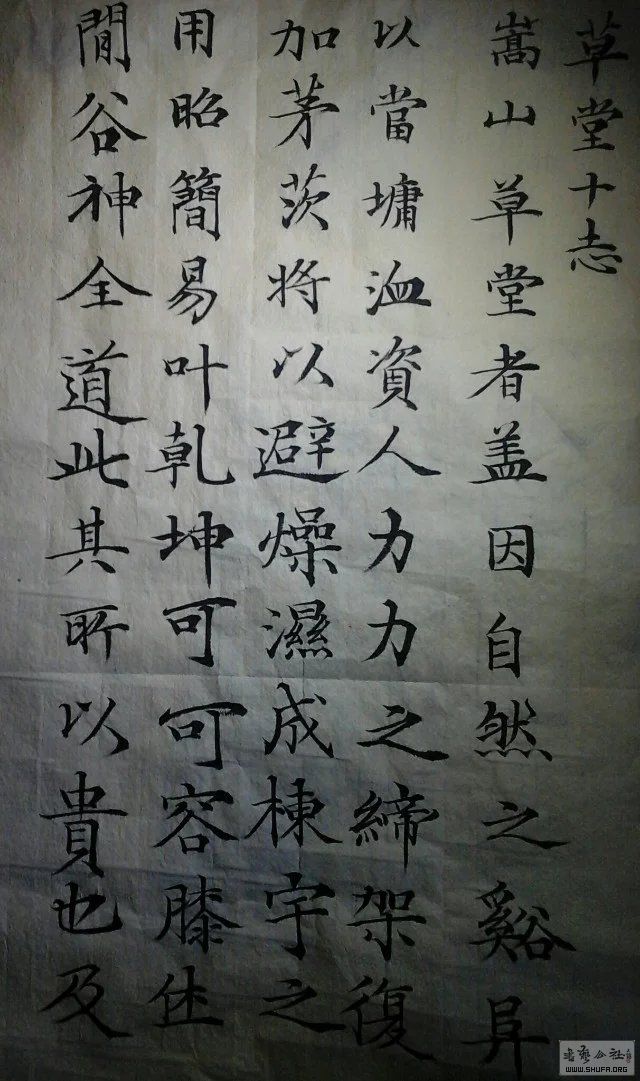 草堂十志
嵩山草堂者盖因自然之谿阜
以當墉洫資人力力之締架復
加茅茨將以避燥濕成棟宇之
用昭簡易叶乾坤可可容膝休
閒谷神全道此其所以貴也及
WWW.SHUFA.ORG